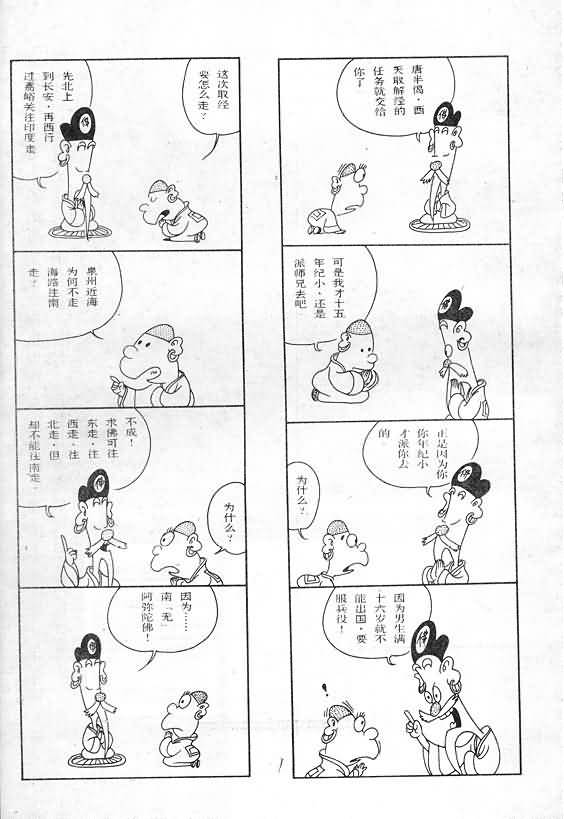 唐半偈·西
天取解经的
任务就交给
你了
可是我才十五
年纪小·还是
派师兄去吧
正是因为你
你年纪小
才派你去
的
为什么?
因为男生满
十六岁就不
能出国·要
服兵役!
!
这次取经
要怎么走?
先北上
到长安·再西行
过嘉峪关注印度走
泉州近海
为何不走
海路注南
走?
不成!
求佛可注
东走·注
西走·注
北走·但
却不能注南走。
为什么?
因为……
南「无」
阿弥陀佛!
1